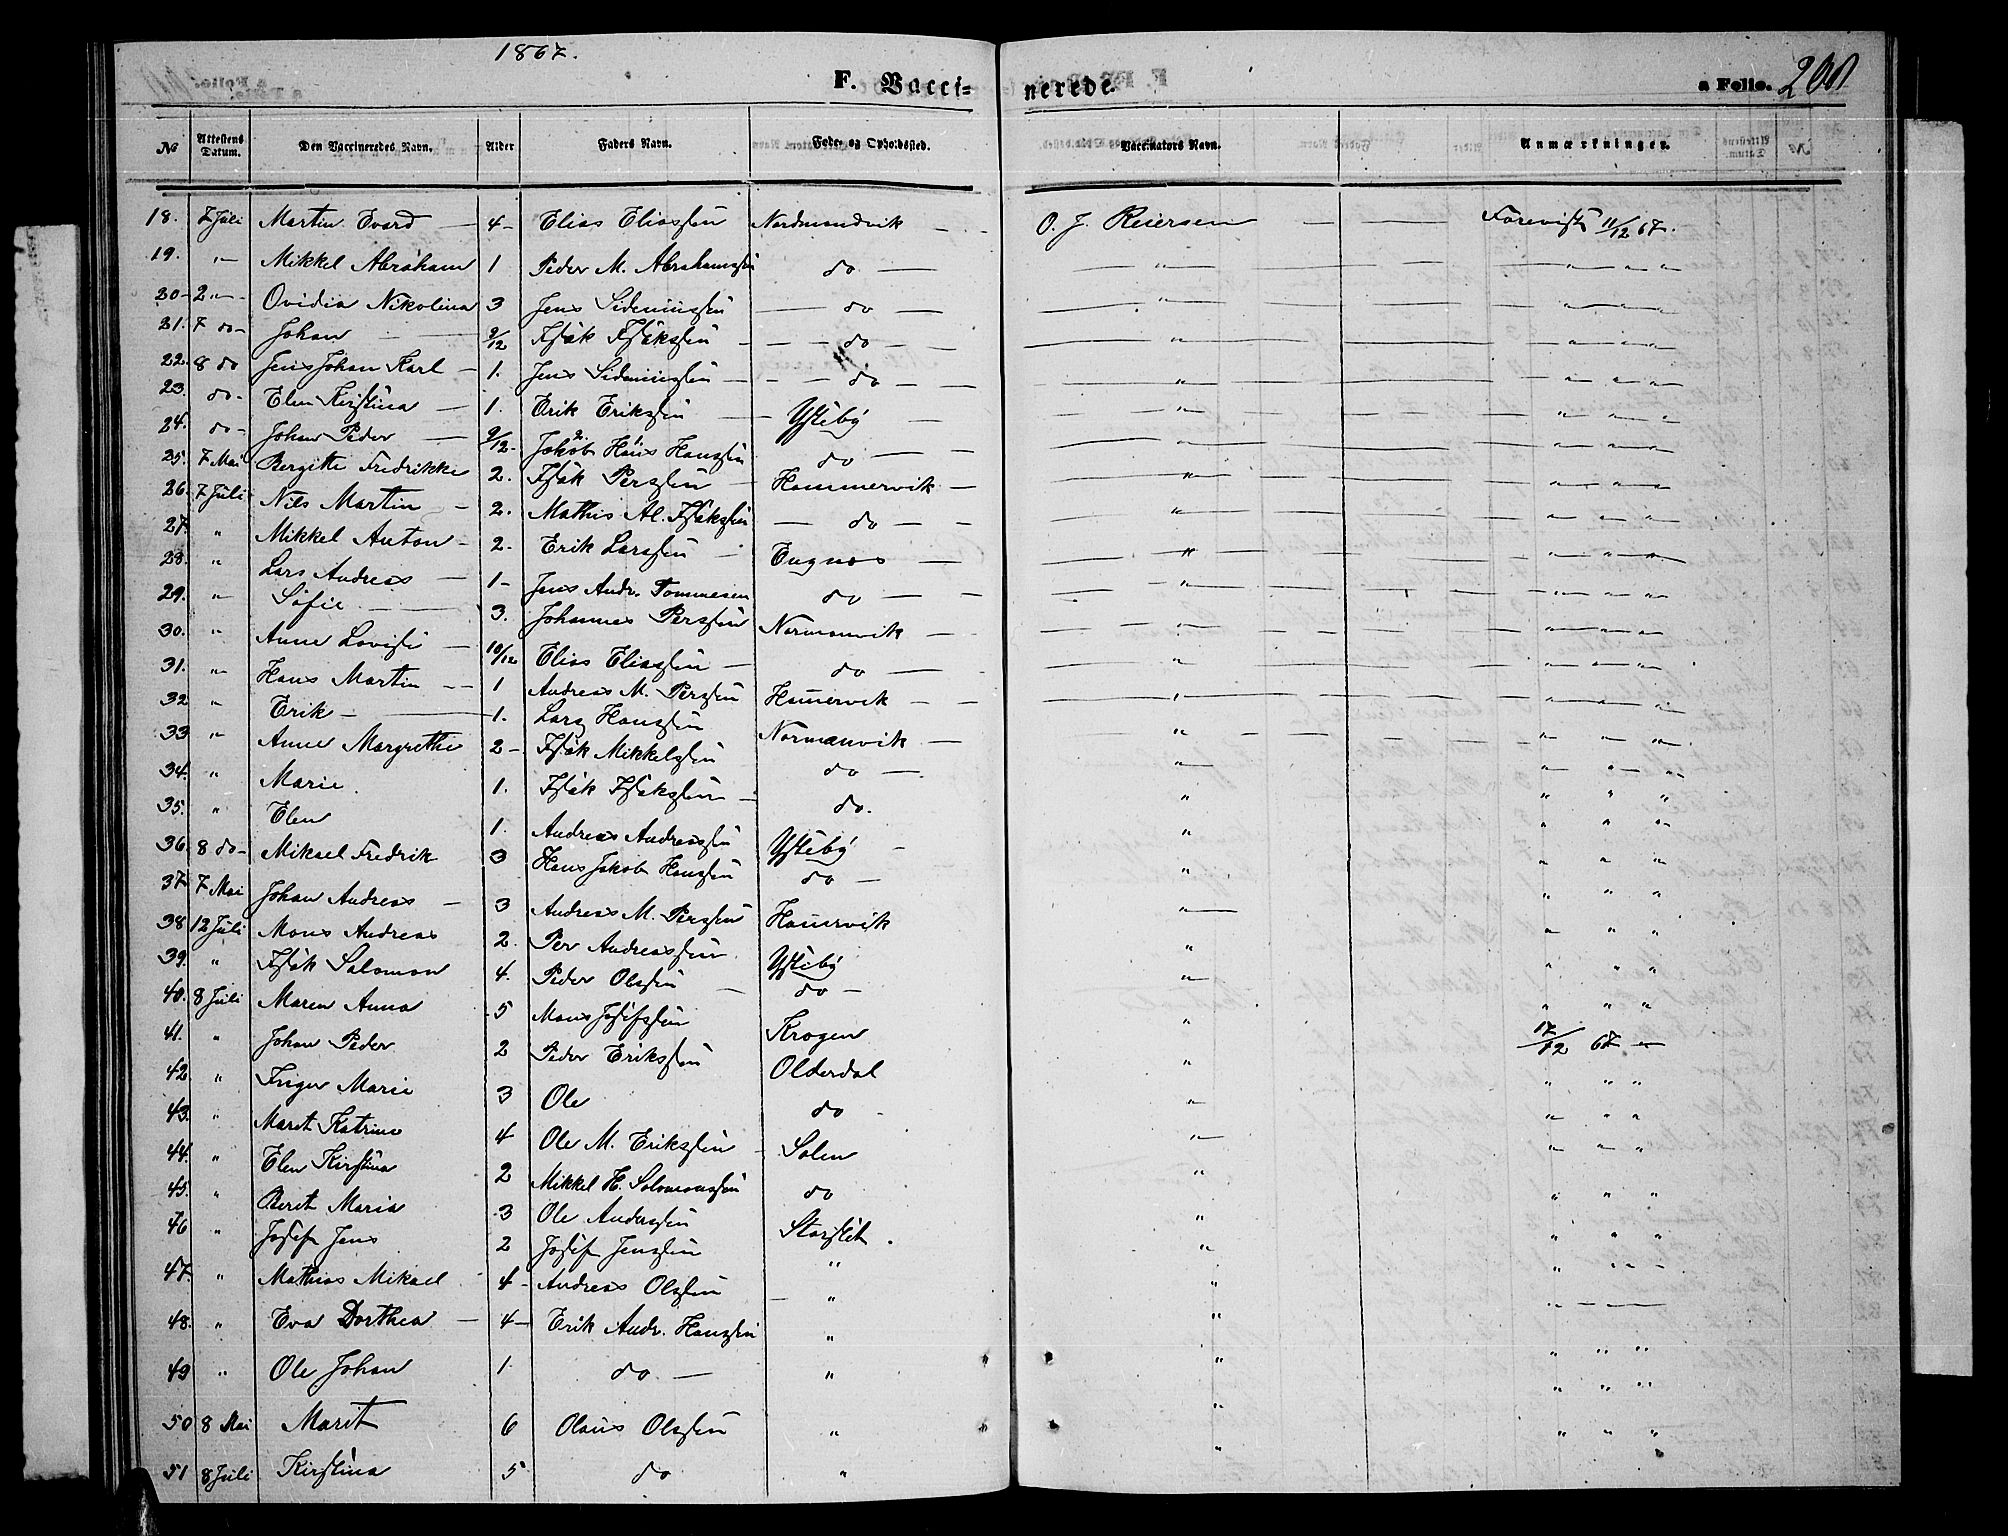 1867.
F. Vacci- nerede. a Folio. 200
No Attestens Datum. Den Vaccineredes Navn. Alder Faders Navn. Føde- og Opholdssted. Vaccinators Navn. Anmærkninger.
18. 7 Juli Martin Evard — 4 - Elias Eliassen Nordmandvik - - O. J. Reiersen — — Forevist 11/12 67.
19. " - Mikkel Abraham 1 Peder M. Abrahamsen do — — " — " " " "
20 - 2 " - Ovidia Nikolina 3 Jens Simeninsen — do — — " — " " " "
21. 7 do - Johan — 9/12 Isak Isaksen - - do - — " — " " " "
22. 8 do Jens Johan Karl - 1. Jens Simeninsen - - - do - — " — " " " "
23. do - Elen Kirstina — 1. Erik Eriksen - Ysteby — — " — " " " "
24. do - Johan Peder — 9/12 - Jakob Hans Hansen do — - — " — " " " "
25. 7 Mai Bergitte Fredrikke 2. Isak Persen - Hammervik - — " — " " " "
26. 7 Juli Nils Martin - 2. Mathis Al. Isaksen — do — - — " — " " " "
27. " Mikkel Anton - 2. Erik Larsen - Engnes — — " — " " " "
28. " Lars Andreas — 1 - Jens Andr. Tommesen do — - — " — " " " "
29. " Sofie — 3. Johannes Persen Normanvik — — " — " " " "
30. " Anne Lovise — 10/12 Elias Eliassen — do — — " — " " " "
31. " Hans Martin — 1 Andreas M. Persen Hamervik - - — " — " " " "
32 " Erik - — 1. Lars Hansen Normanvik — " - " " " "
33 " Anne Margrethe 2 - Isak Mikkelsen do — " " " "
34. " Marie. 1. Isak Isaksen - do. " " " "
35. " Elen 1. Andreas Andreassen Ysteby - " " " "
36. 8 do - Mikael Fredrik 3 Hans Jakob Hansen do — " " " "
37. 7 Mai Johan Andreas - 3 Andreas M. Persen Hamervik " " " "
38 12 Juli Mons Andreas 2. Per Andreassen Ysteby " " " "
39. " Isak Salomon 4. Peder Olsen - do - " " " "
40. 8 Juli Maren Anna 5 Mons Josefsen Krogen " 17/12 67 "
41. " Johan Peder 2 Peder Eriksen Olderdal " " " "
42. " Inger Marie 3 Ole do - " " " "
43. " Marit Katrine 4 Ole M. Eriksen - Solen " " " "
44. " Elen Kirstina 2 Mikkel H. Solomonsen do " " " "
45. " Berit Maria 3 Ole Andersen Storslet. " " " "
46 " Josef Jens 2 Josef Jensen " " " " "
47. " Mathias Mikael 4 - Andreas Olsen - " " " " "
48. " Eva Dorthea — 4 - Erik Andr. Hansen " " " " "
49 " Ole Johan 1. do — " " " " "
50 8 Mai Marit 6 Olaus Olsen " " " " "
51 8 Juli Kirstina 5 do " "